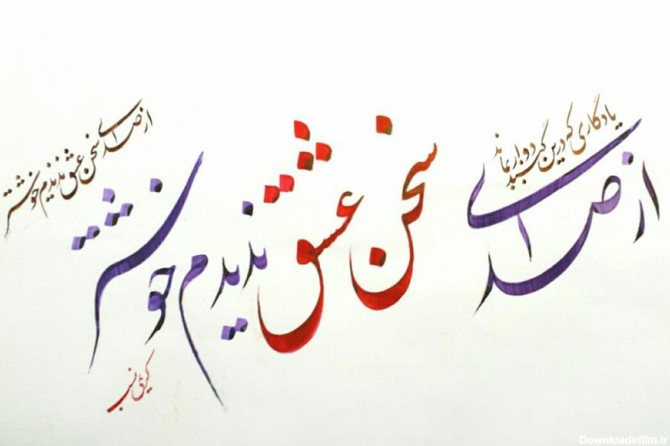 از صدای سخن عشق ندیدم خوشتر
یادگاری که درین گنبد دوار بماند
از صدای سخن عشق ندیدم خوشتر
Downloadefilm.ir